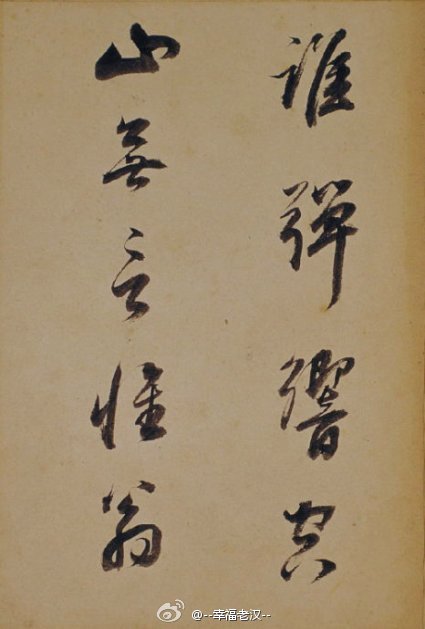 誰彈響空
山無言惟翁
@--幸福老汉--